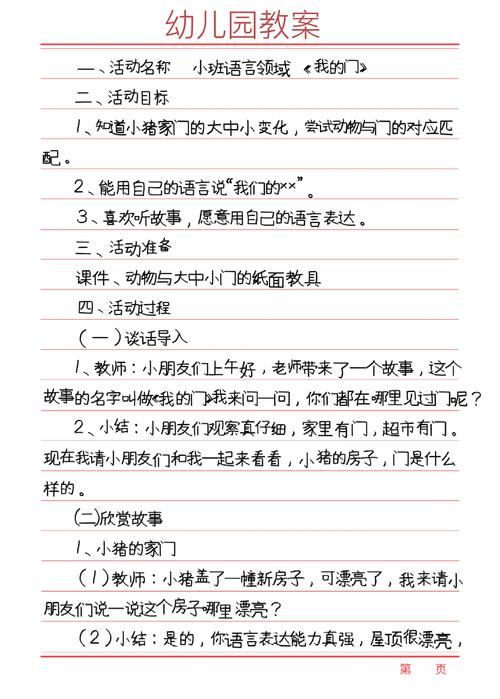 幼儿园教案
一、活动名称 小班语言领域 《我的门》
二、活动目标
1、知道小猪家门的大中小变化，尝试动物与门的对应匹
配。
2、能用自己的语言说“我们的××”。
3、喜欢听故事，愿意用自己的语言表达。
三、活动准备
课件、动物与大中小门的纸面教具
四、活动过程
（一）谈话导入
1、教师：小朋友们上午好，老师带来了一个故事，这个
故事的名字叫做《我的门》我来问一问，你们都在哪里见过门呢？
2、小结：小朋友们观察真仔细，家里有门，超市有门。
现在我请小朋友们和我一起来看看，小猪的房子，门是什么
样的。
(二)欣赏故事
1、小猪的家门
（1）教师：小猪盖了一幢新房子，可漂亮了，我来请小
朋友们说一说这个房子哪里漂亮？
（2）小结：是的，你语言表达能力真强，屋顶很漂亮，
第 页